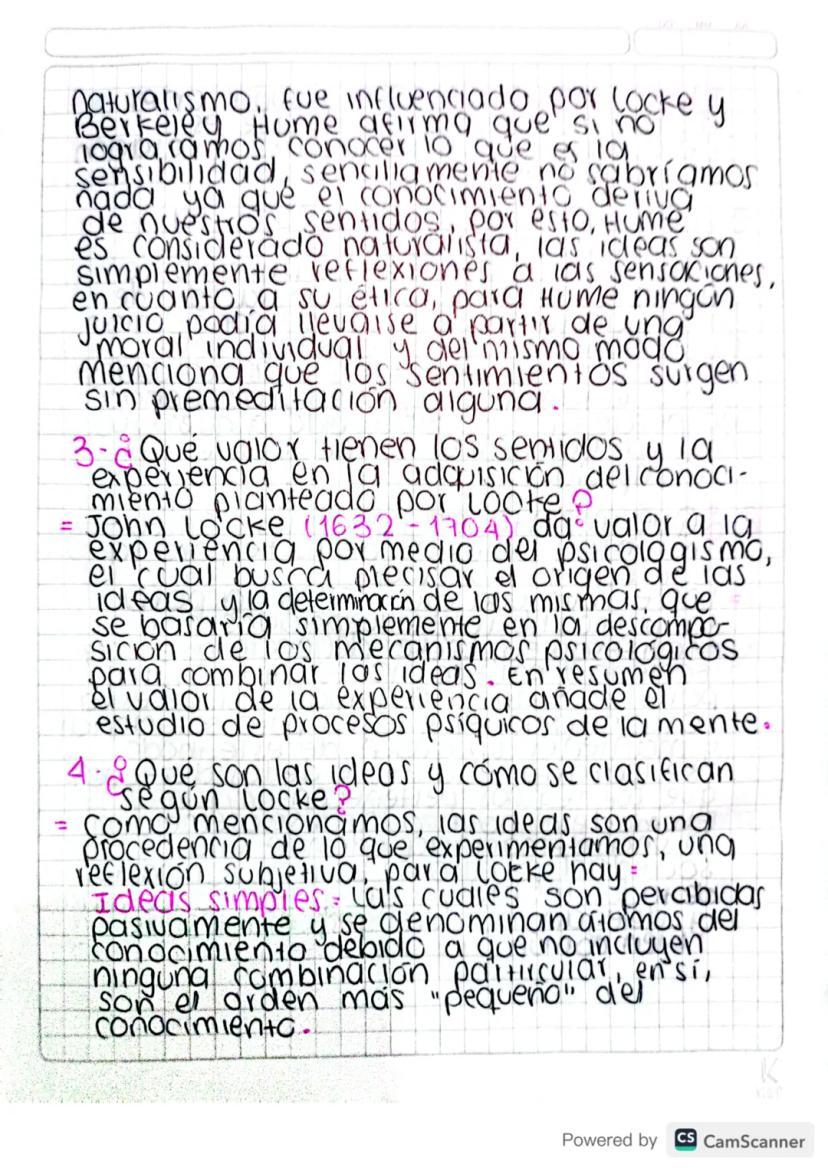 naturalismo, fue influenciado por Locke y
Berkeley Hume afirma que si no
lograramos conocer lo que es la
sensibilidad, sencillamente no sabríamos
nada ya que el conocimiento deriva
de nuestros sentidos, por esto, Hume
es considerado naturalista, las ideas son
simplemente reflexiones a las sensaciones,
en cuanto a su ética, para Hume ningún
juicio podía llevarse a partir de una
moral individual y del mismo modo
menciona que los sentimientos surgen
sin premeditación alguna.
3-¿Qué valor tienen los sentidos y la
experiencia en la adquisición del conoci-
miento planteado por Locke?
= John Locke (1632-1704) da valor a la
experiencia por medio del psicologismo,
el cual busca precisar el origen de las
ideas y la determinación de las mismas, que
se basaría simplemente en la descompo-
sición de los mecanismos psicológicos
para combinar las ideas. En resumen
el valor de la experiencia añade el
estudio de procesos psíquicos de la mente.
4-¿Qué son las ideas y cómo se clasifican
según Locke?
= como mencionamos, las ideas son una
procedencia de lo que experimentamos, una
reflexión subjetiva, para Locke hay=
Ideas simples= Las cuales son percibidas
pasivamente y se denominan átomos del
conocimiento debido a que no incluyen
ninguna combinación partircular, en sí,
son el orden más "pequeño" del
conocimiento.
K
Powered by CS CamScanner